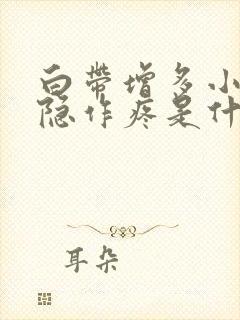 白带增多小
隐作疼是什
耳朵